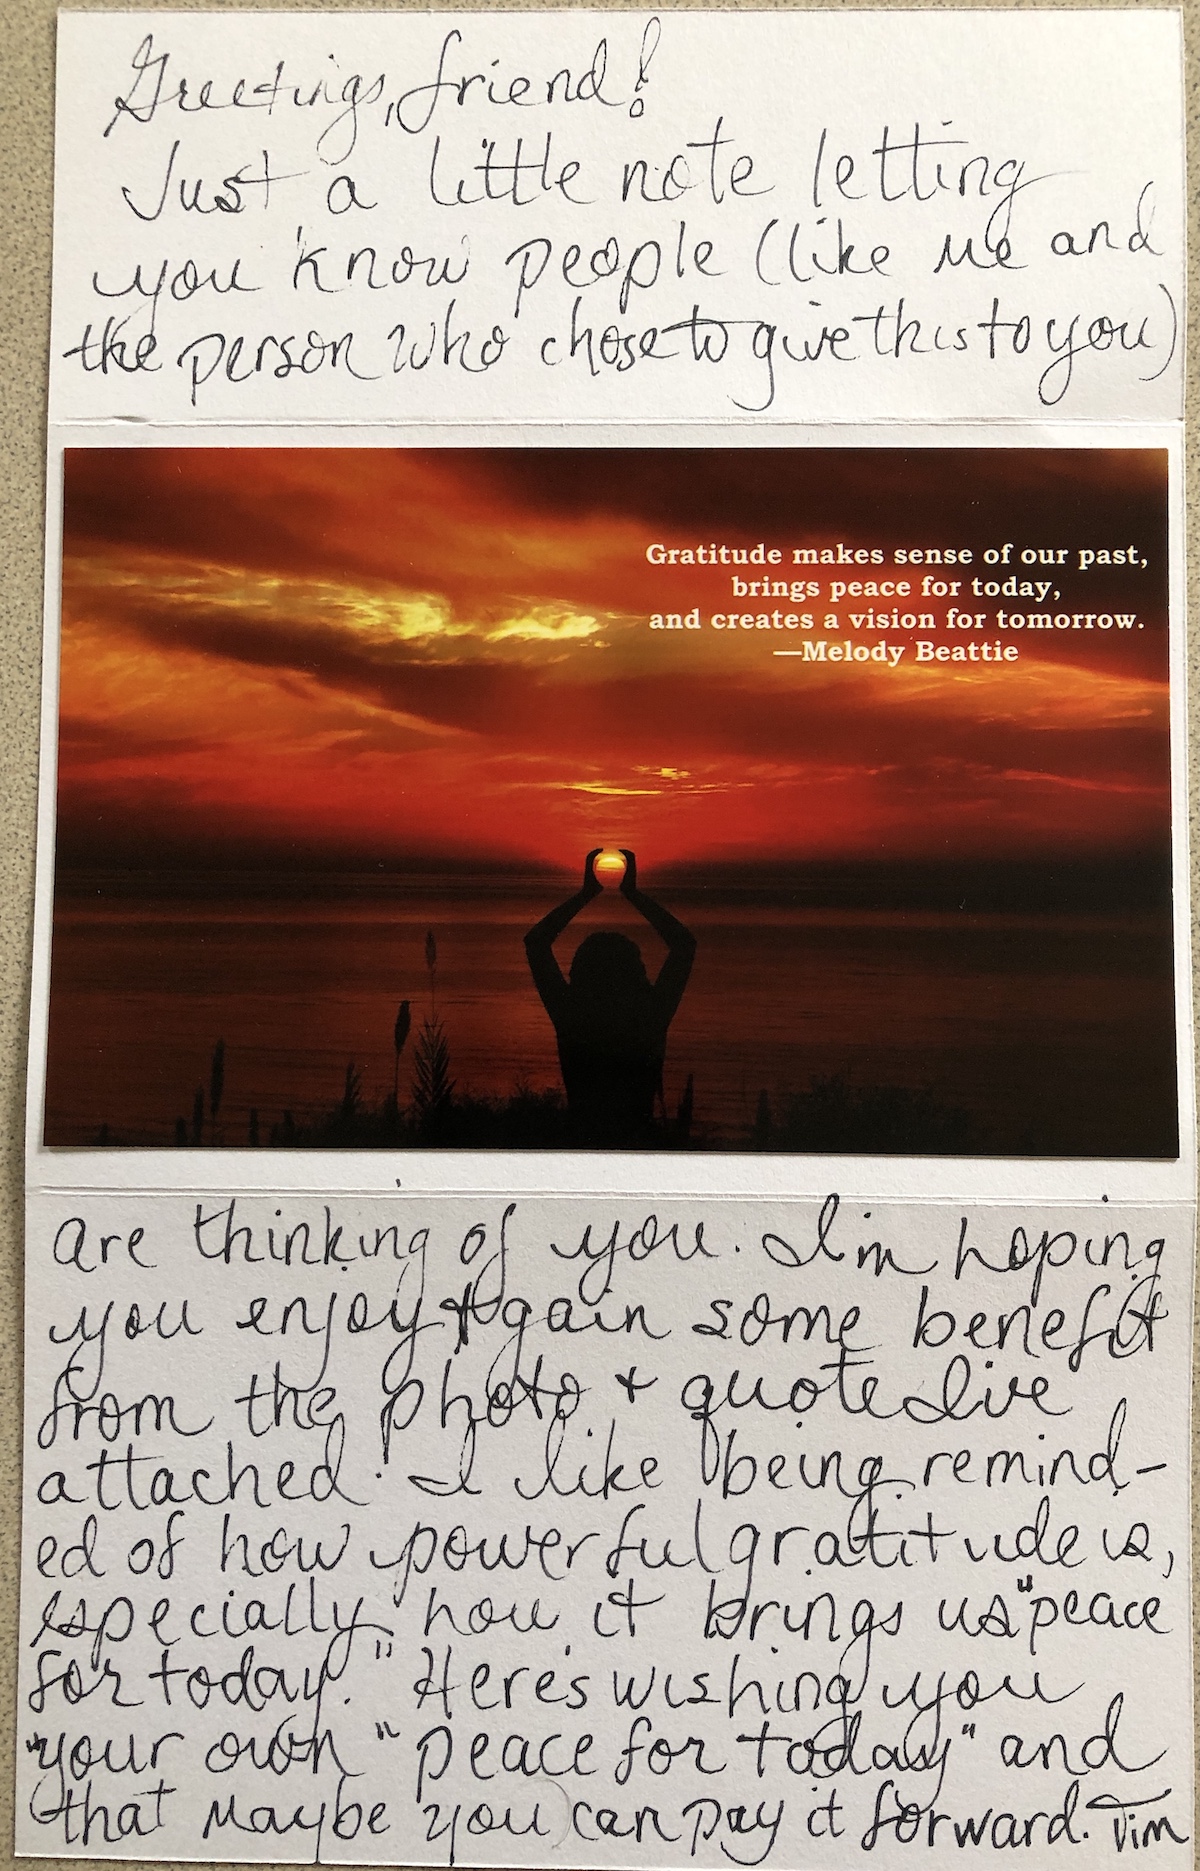 Greetings, friend!
Just a little note letting
you know people (like me and
the person who chose to give this to you)
Gratitude makes sense of our past,
brings peace for today,
and creates a vision for tomorrow.
—Melody Beattie
are thinking of you. I'm hoping
you enjoy + gain some benefit
from the photo + quote I've
attached. I like being remind-
ed of how powerful gratitude is,
especially how it brings us "peace
for today." Here's wishing you
your own "peace for today" and
that maybe you can pay it forward. Tim